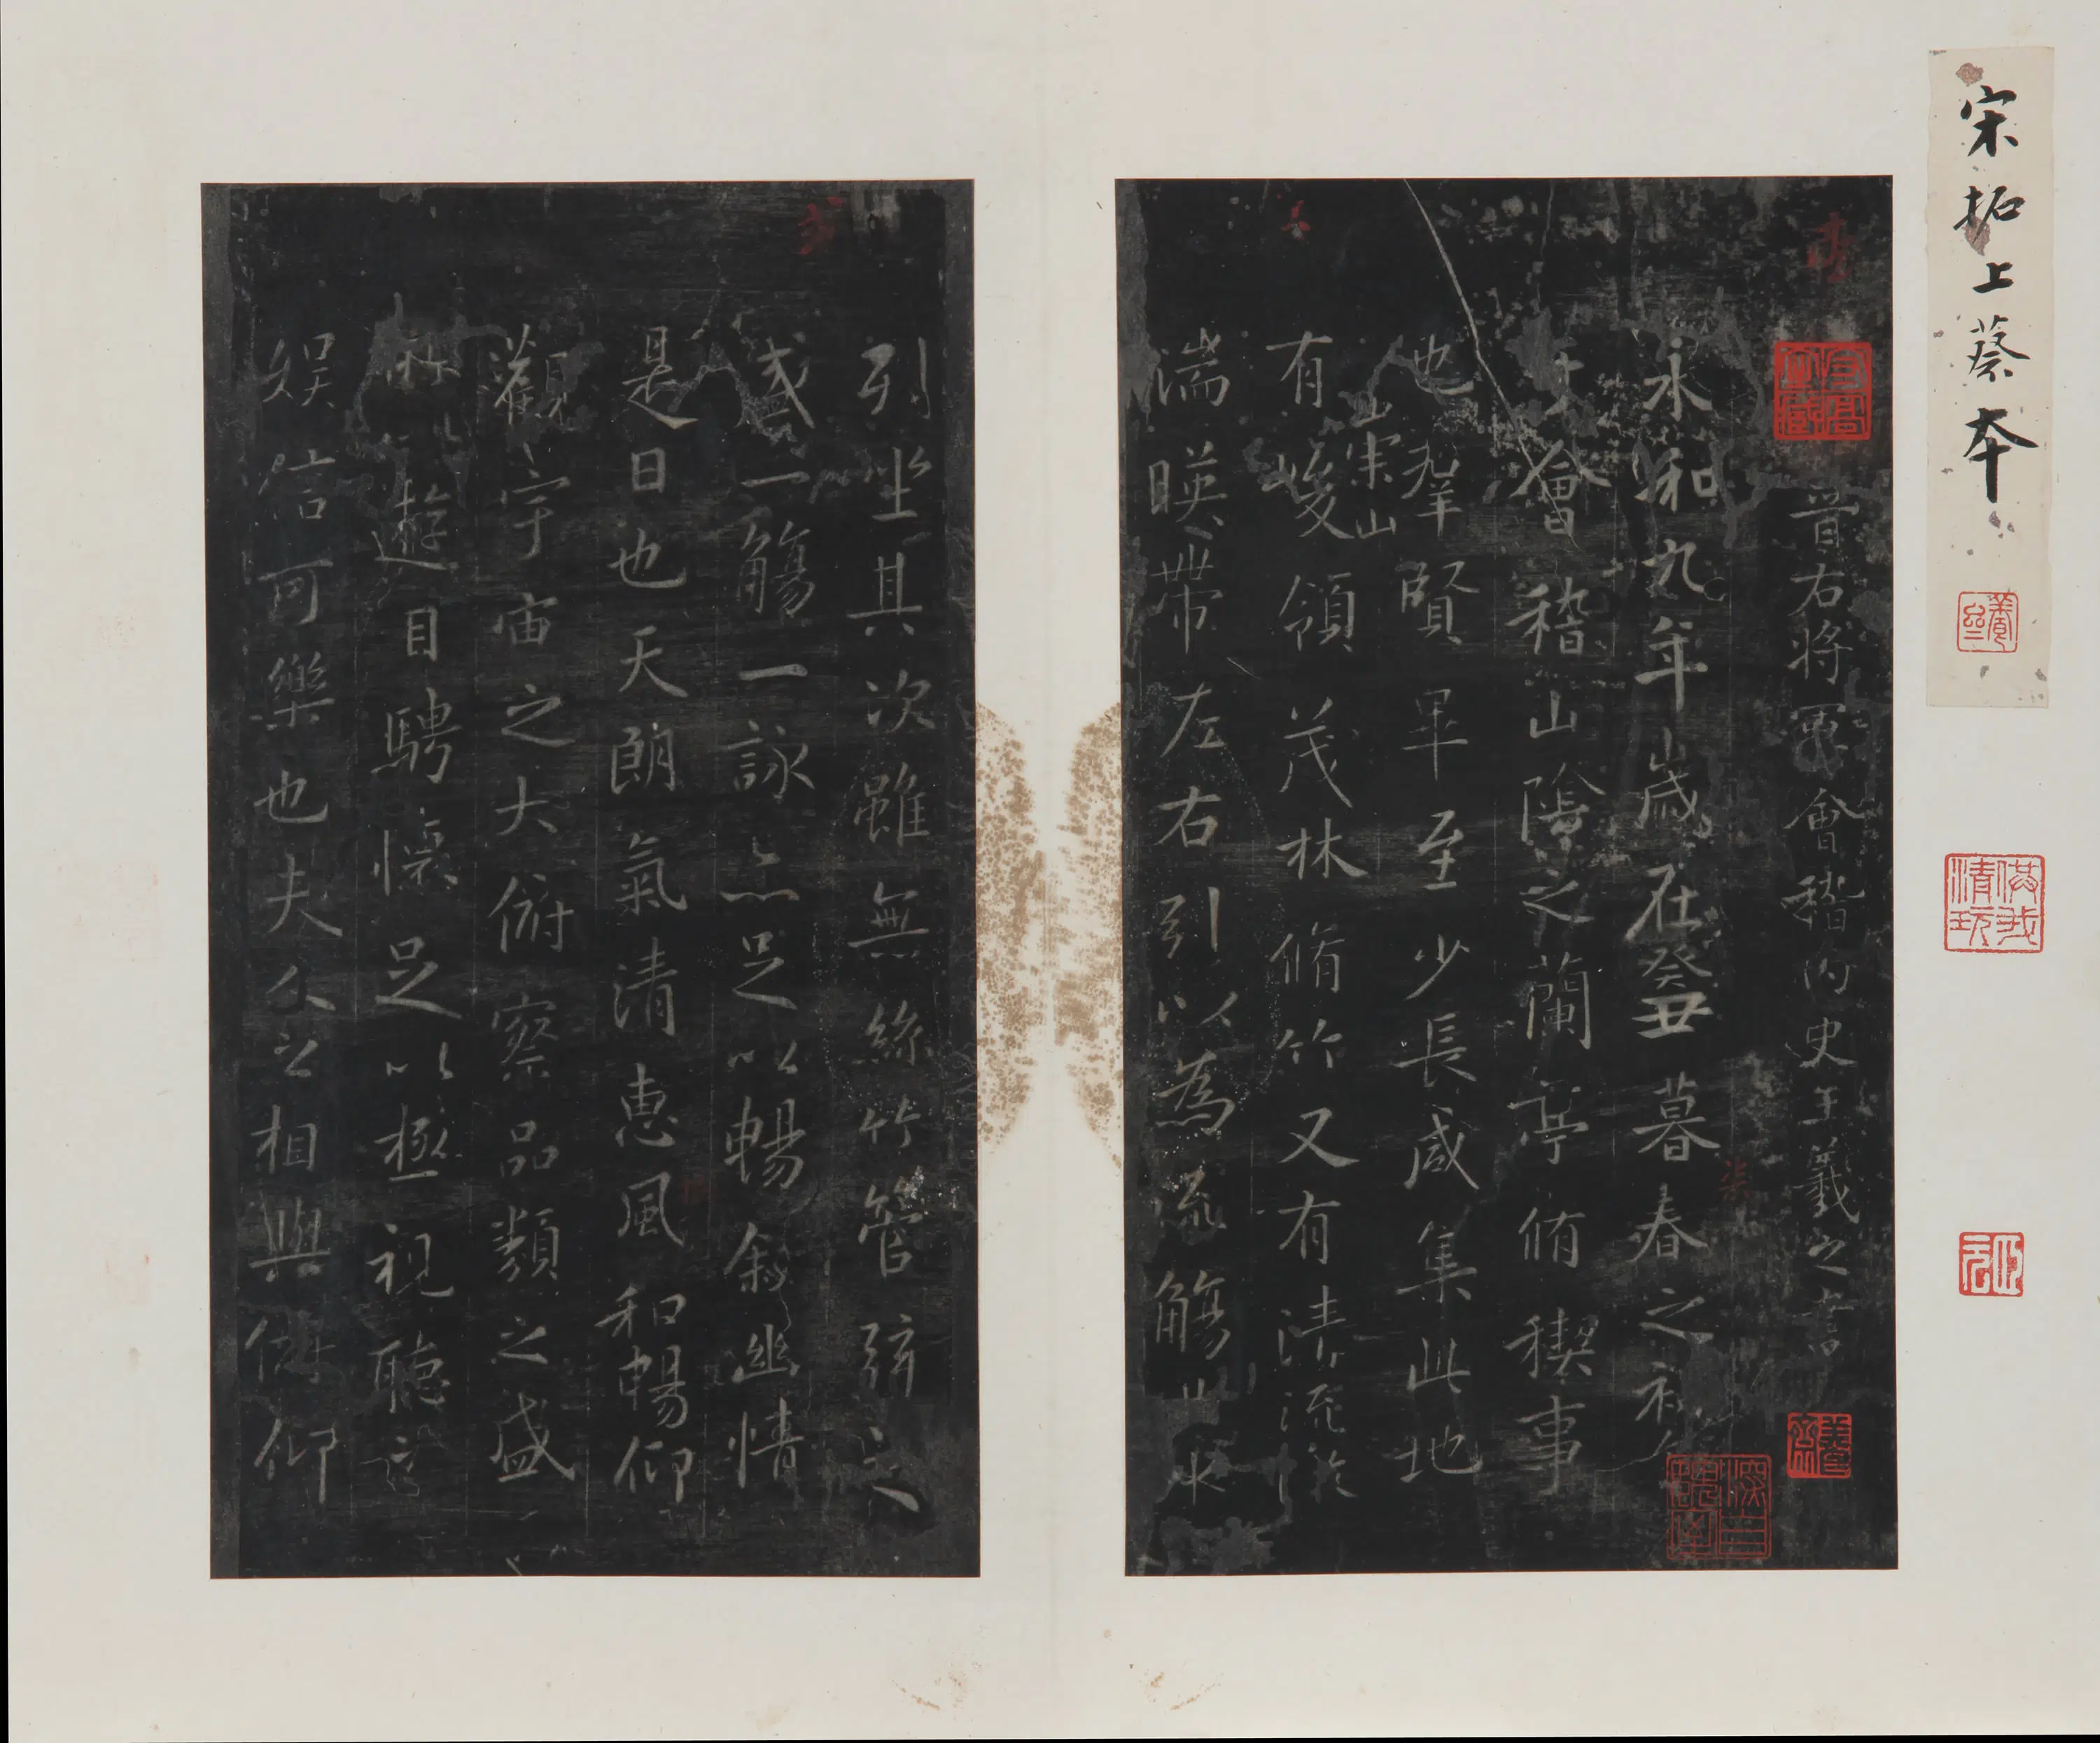 宋拓上蔡本
晉右將軍會稽內史王羲之書
永和九年歲在癸丑暮春之初
會稽山陰之蘭亭脩稧事
也羣賢畢至少長咸集此地
崇山
有峻領茂林脩竹又有清流於
湍暎帶左右引以為流觴曲水
列坐其次雖無絲竹管弦之
盛一觴一詠亦足以暢敘幽情
是日也天朗氣清惠風和暢仰
觀宇宙之大俯察品類之盛
所遊目騁懷足以極視聽之
娛信可樂也夫人之相與俯仰
供我清玩